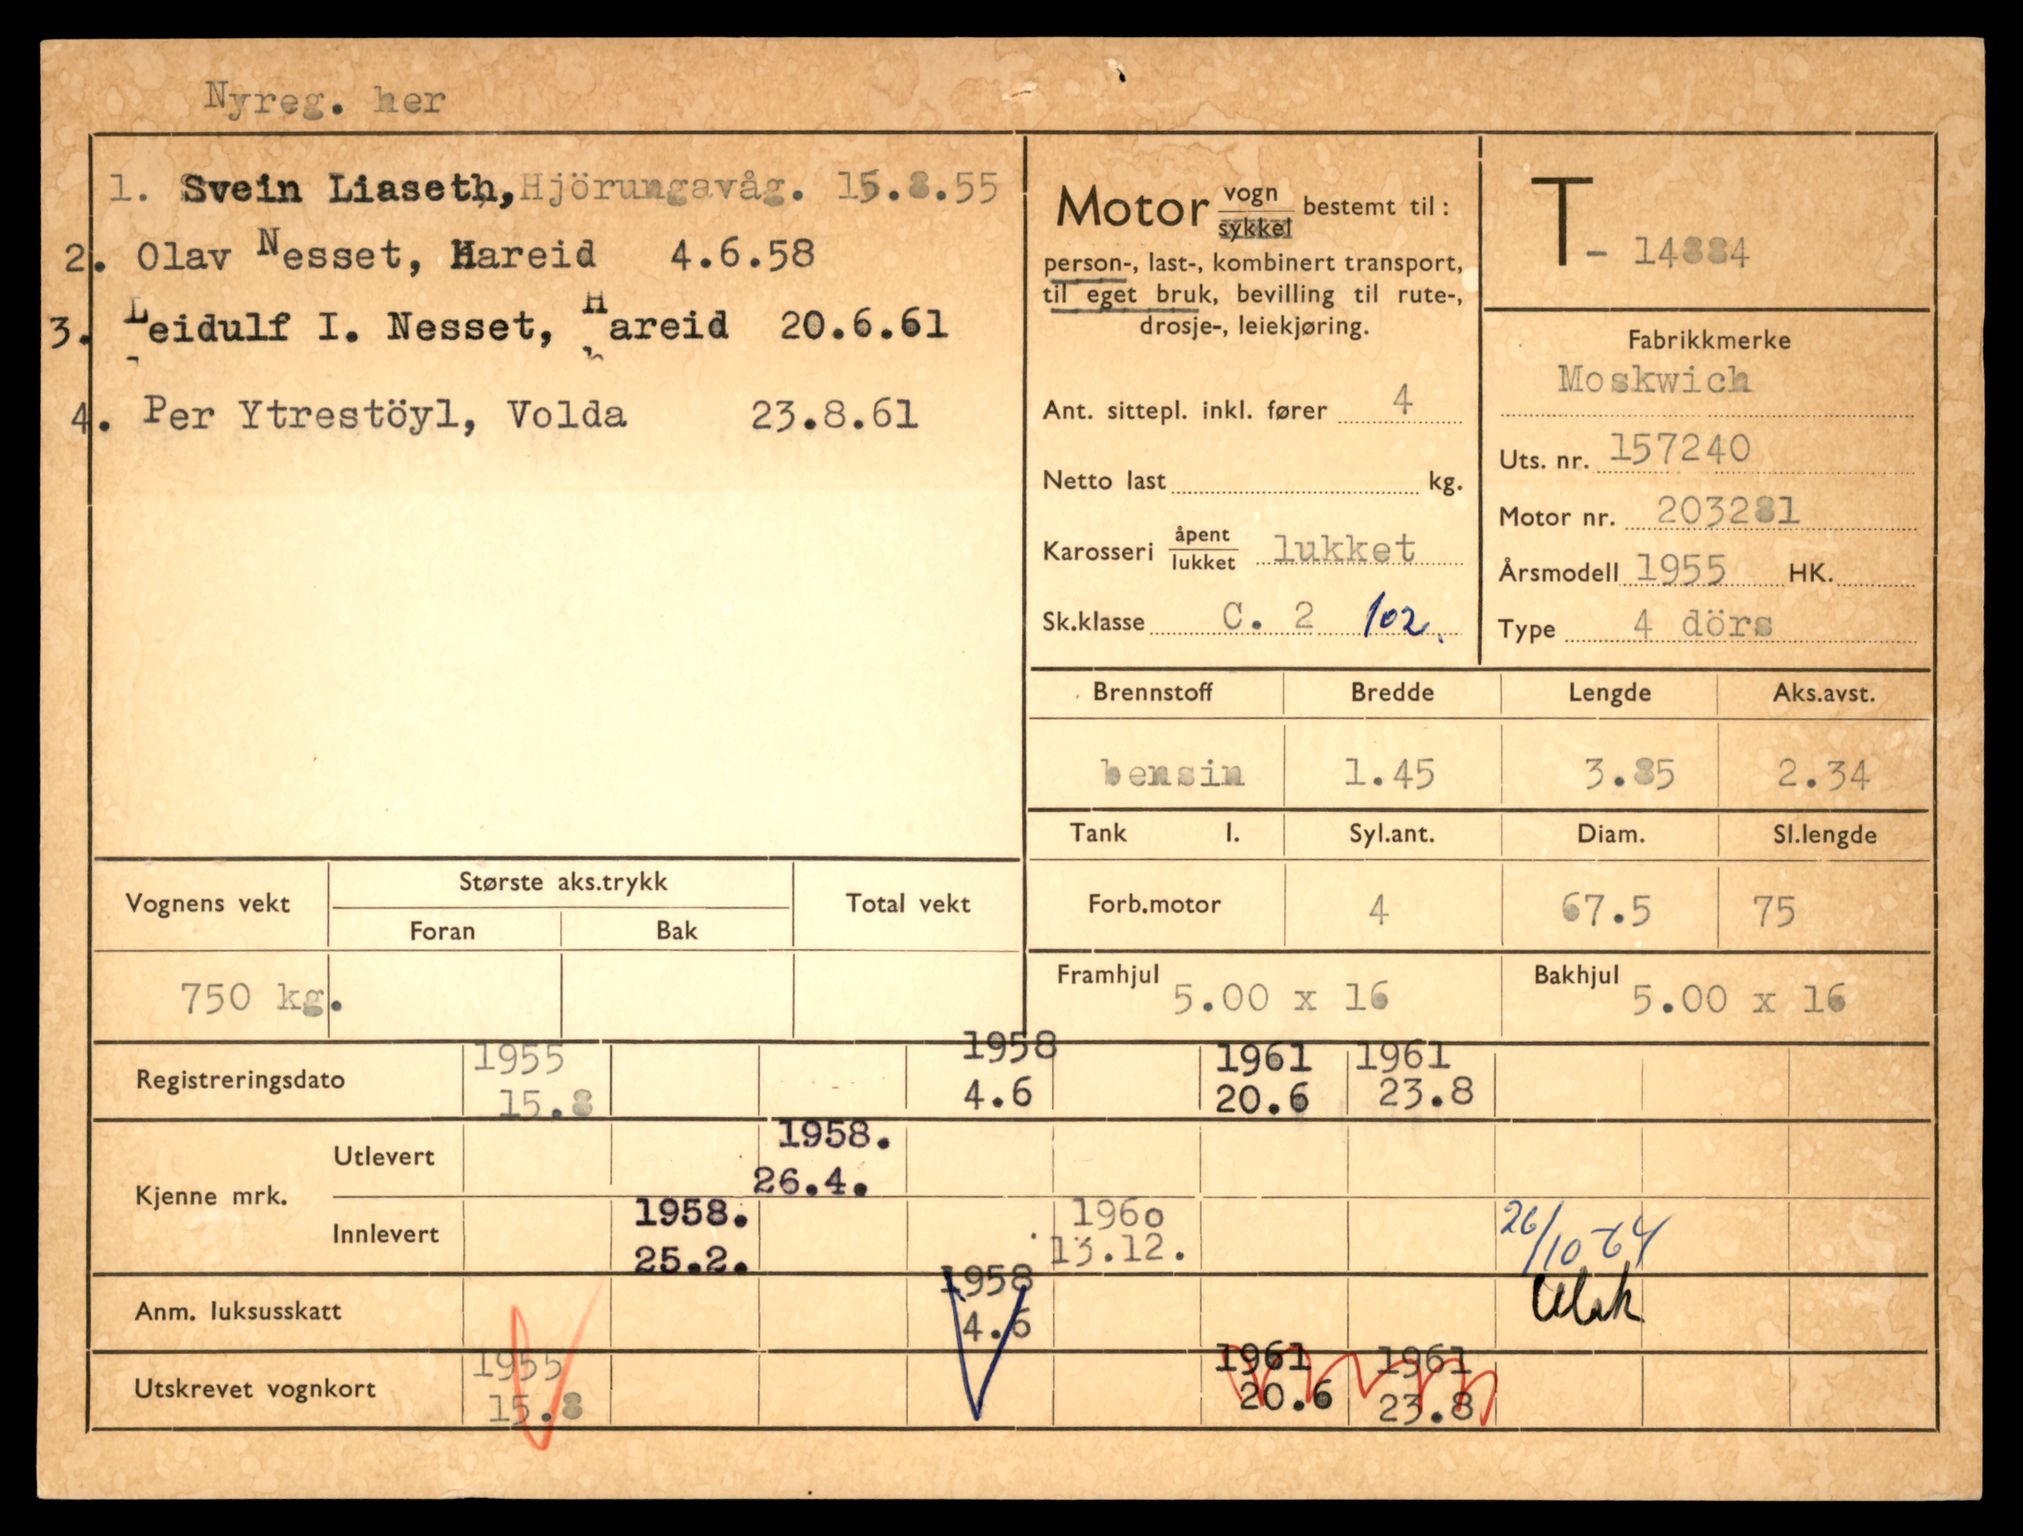 Nyreg. her
1. Svein Liaseth, Hjörungavåg. 15.8.55
2. Olav Nesset, Hareid 4.6.58
3. Leidulf I. Nesset, Hareid 20.6.61
4. Per Ytrestöyl, Volda 23.8.61
Motor vogn/sykkel bestemt til:
person-, last-, kombinert transport,
til eget bruk, bevilling til rute-,
drosje-, leiekjøring.
Ant. sittepl. inkl. fører 4
Netto last kg.
Karosseri åpent/lukket lukket
Sk.klasse C. 2 102.
T- 14884
Fabrikkmerke
Moskwich
Uts. nr. 157240
Motor nr. 203281
Årsmodell 1955 HK.
Type 4 dörs
Brennstoff Bredde Lengde Aks.avst.
bensin 1.45 3.85 2.34
Tank l. Syl.ant. Diam. Sl.lengde
Forb.motor 4 67.5 75
Framhjul 5.00 x 16 Bakhjul 5.00 x 16
Vognens vekt Største aks.trykk Total vekt
Foran Bak
750 kg.
1955 1958 1961 1961
Registreringsdato 15.8 4.6 20.6 23.8
Kjenne mrk.
Utlevert 1958. 26.4.
Innlevert 1958. 25.2. 1960 13.12. 26/10-64
Anm. luksusskatt 1958 4.6
1955 1961 1961
Utskrevet vognkort 15.8 20.6 23.8